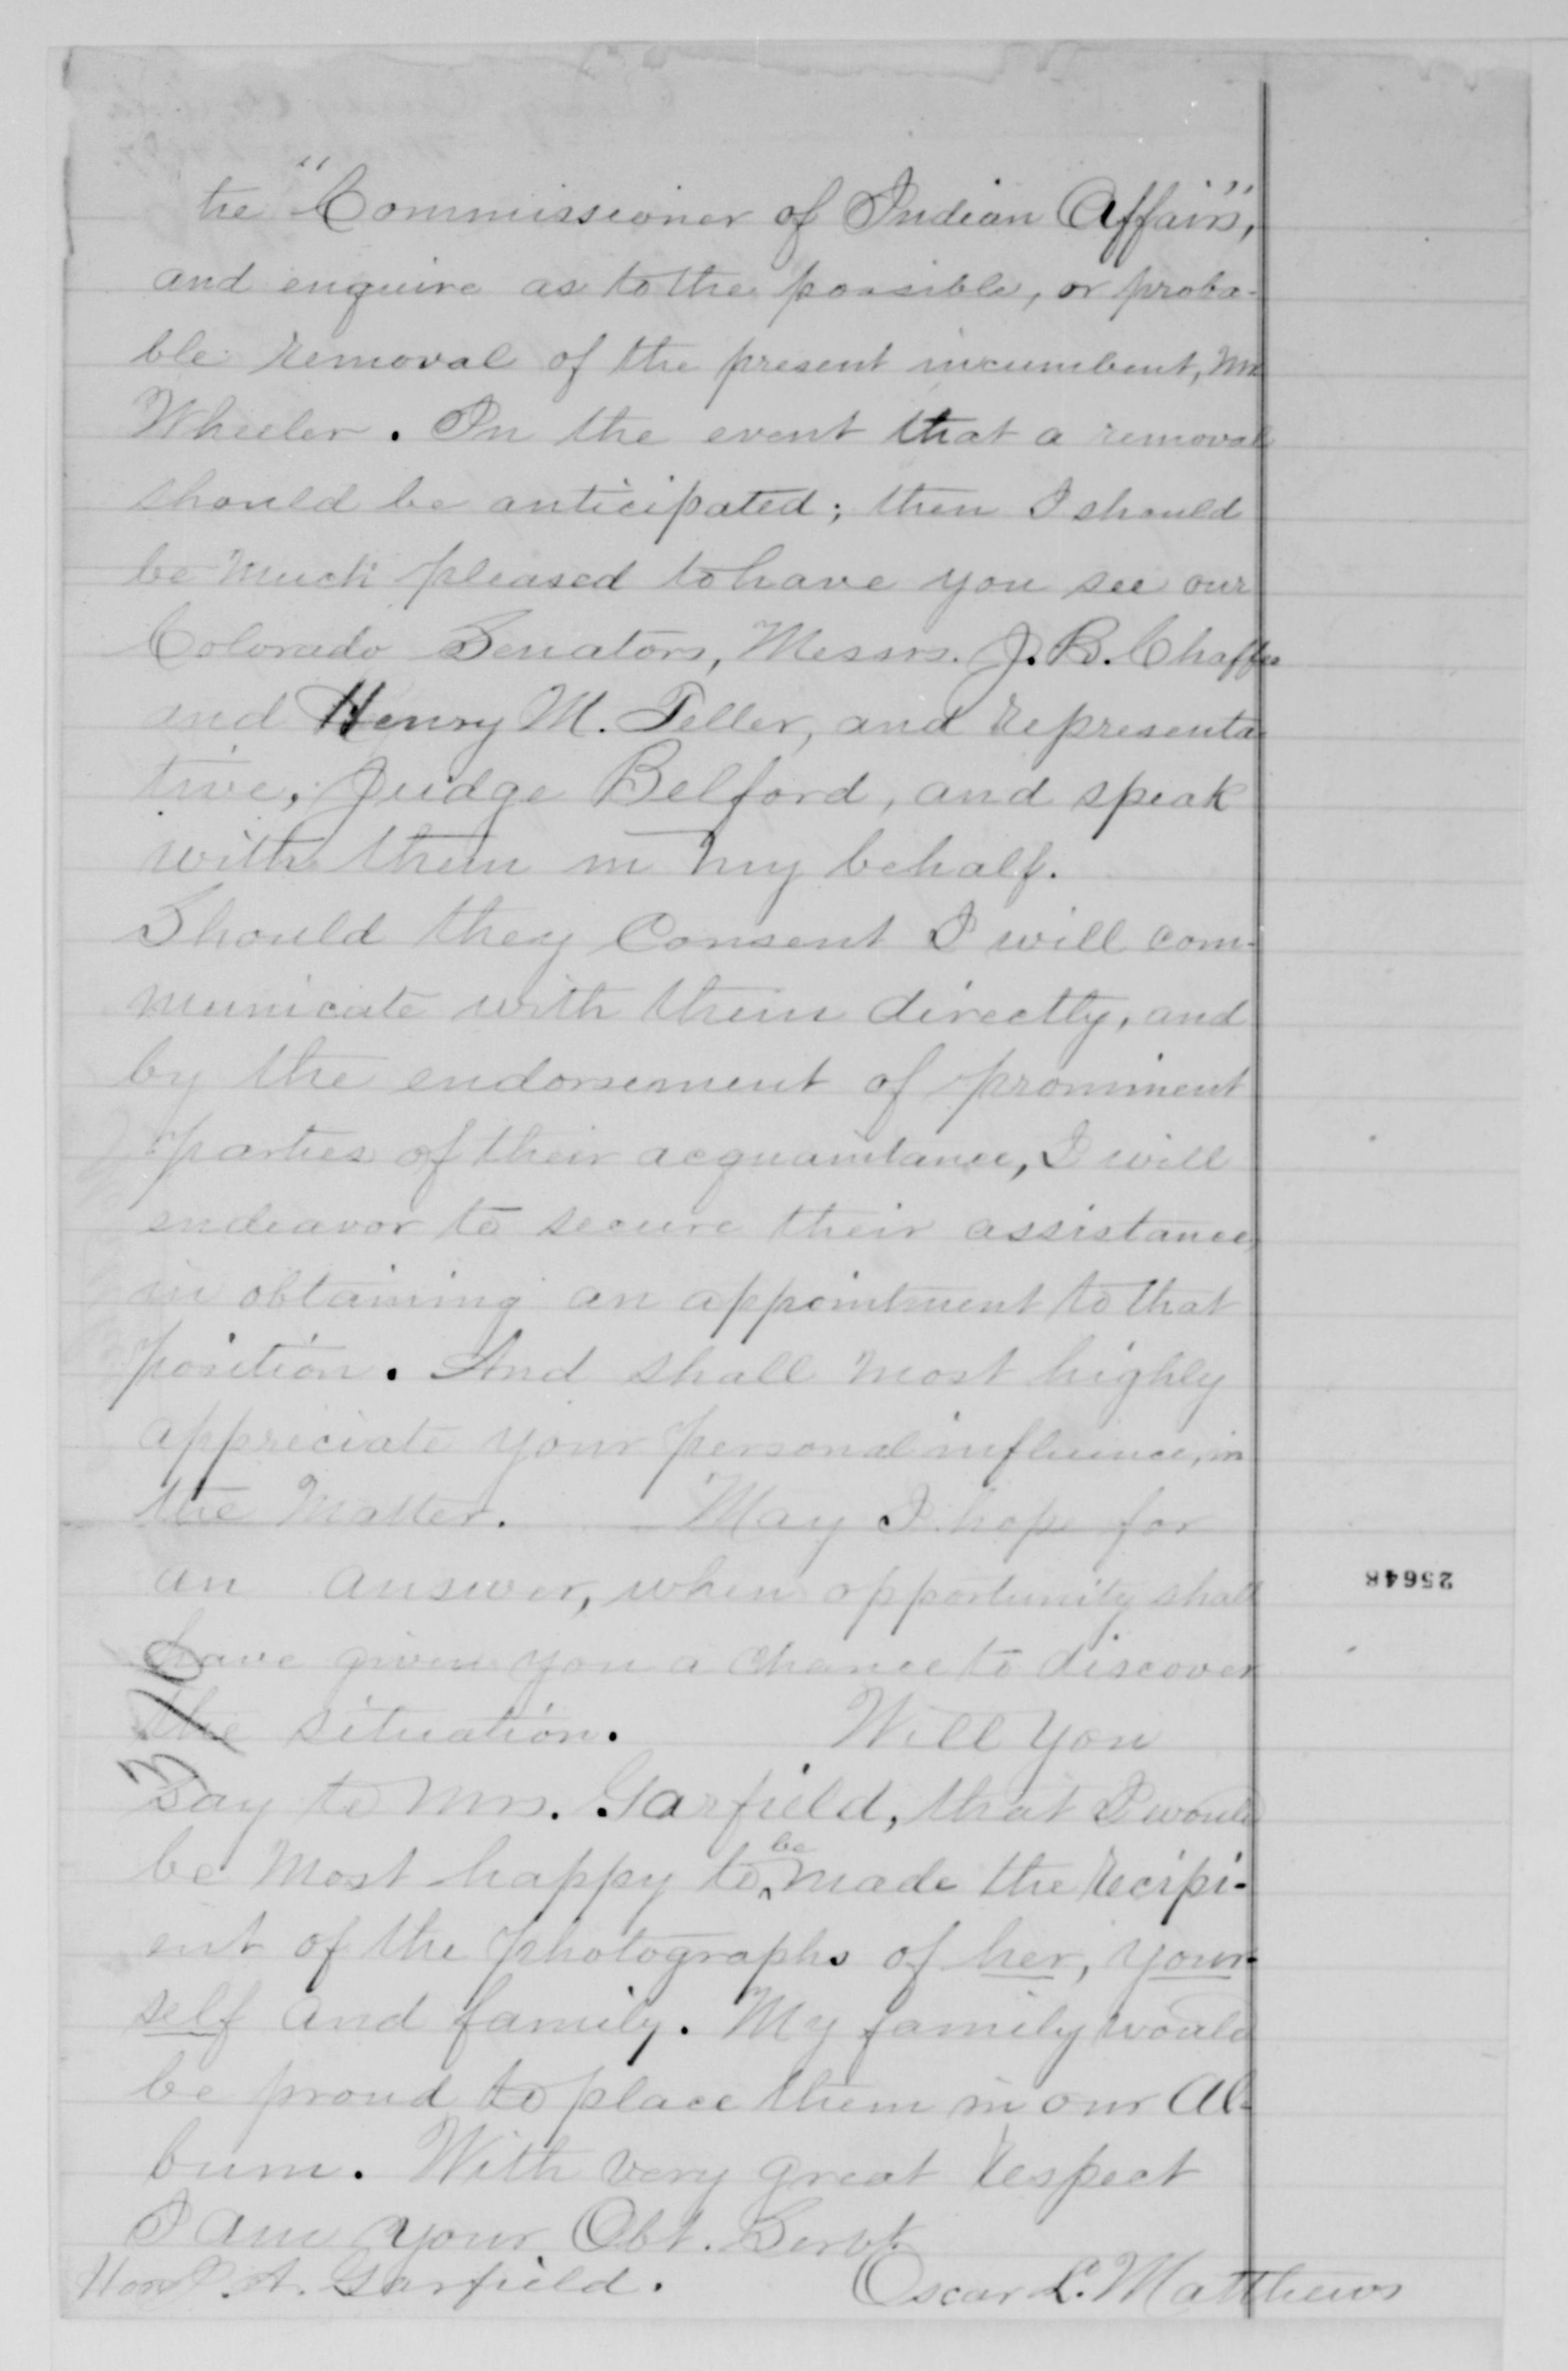 the "Commissioner of Indian Affairs",
and enquire as to the possible, or proba-
ble removal of the present incumbent, Mr
Wheeler. In the event that a removal
should be anticipated; then I should
be much pleased to have you see our
Colorado Senators, Messrs. J. B. Chaffee
and Henry M. Teller, and Representa
tive, Judge Belford, and speak
with them in my behalf.
Should they Consent I will com-
municate with them directly, and
by the endorsement of prominent
parties of their acquaintance, I will
endeavor to secure their assistance,
in obtaining an appointment to that
position. And shall most highly
appreciate your personal influence, in
the Matter. May I hope for
an answer, when opportunity shall
have given you a chance to discover
the situation. Will you
say to Mrs. Garfield, that I would
be most happy to be made the recipi-
ent of the photographs of her, your-
self and family. My family would
be proud to place them in our Al-
bum. With very great respect
I am your Obt. Servt.
Hon J. A. Garfield. Oscar L. Matthews
25648